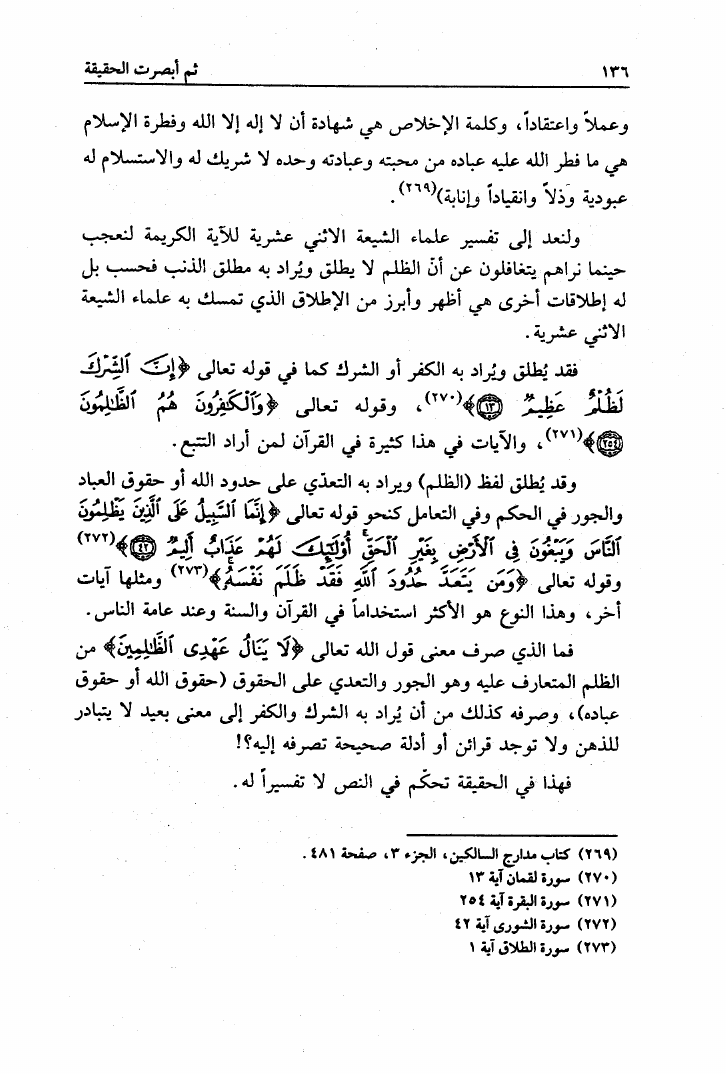 ١٣٦ ثم أبصرت الحقيقة
وعملاً واعتقاداً، وكلمة الإخلاص هي شهادة أن لا إله إلا الله وفطرة الإسلام
هي ما فطر الله عليه عباده من محبته وعبادته وحده لا شريك له والاستسلام له
عبودية وذلاً وانقياداً وإنابة)(٢٦٩).
ولنعد إلى تفسير علماء الشيعة الاثني عشرية للآية الكريمة لنعجب
حينما نراهم يتغافلون عن أنّ الظلم لا يطلق ويُراد به مطلق الذنب فحسب بل
له إطلاقات أخرى هي أظهر وأبرز من الإطلاق الذي تمسك به علماء الشيعة
الاثني عشرية.
فقد يُطلق ويُراد به الكفر أو الشرك كما في قوله تعالى ﴿إِنَّ ٱلشِّرْكَ
لَظُلْمٌ عَظِيمٌ ۝١٣﴾(٢٧٠)، وقوله تعالى ﴿وَٱلْكَٰفِرُونَ هُمُ ٱلظَّٰلِمُونَ
۝٢٥٤﴾(٢٧١)، والآيات في هذا كثيرة في القرآن لمن أراد التتبع.
وقد يُطلق لفظ (الظلم) ويراد به التعدّي على حدود الله أو حقوق العباد
والجور في الحكم وفي التعامل كنحو قوله تعالى ﴿إِنَّمَا ٱلسَّبِيلُ عَلَى ٱلَّذِينَ يَظْلِمُونَ
ٱلنَّاسَ وَيَبْغُونَ فِى ٱلْأَرْضِ بِغَيْرِ ٱلْحَقِّ أُو۟لَٰٓئِكَ لَهُمْ عَذَابٌ أَلِيمٌ ۝٤٢﴾(٢٧٢)
وقوله تعالى ﴿وَمَن يَتَعَدَّ حُدُودَ ٱللَّهِ فَقَدْ ظَلَمَ نَفْسَهُۥ﴾(٢٧٣) ومثلها آيات
أخر، وهذا النوع هو الأكثر استخداماً في القرآن والسنة وعند عامة الناس.
فما الذي صرف معنى قول الله تعالى ﴿لَا يَنَالُ عَهْدِى ٱلظَّٰلِمِينَ﴾ من
الظلم المتعارف عليه وهو الجور والتعدي على الحقوق (حقوق الله أو حقوق
عباده)، وصرفه كذلك من أن يُراد به الشرك والكفر إلى معنى بعيد لا يتبادر
للذهن ولا توجد قرائن أو أدلة صحيحة تصرفه إليه؟!
فهذا في الحقيقة تحكّم في النص لا تفسيراً له.
(٢٦٩) كتاب مدارج السالكين، الجزء ٣، صفحة ٤٨١.
(٢٧٠) سورة لقمان آية ١٣
(٢٧١) سورة البقرة آية ٢٥٤
(٢٧٢) سورة الشورى آية ٤٢
(٢٧٣) سورة الطلاق آية ١